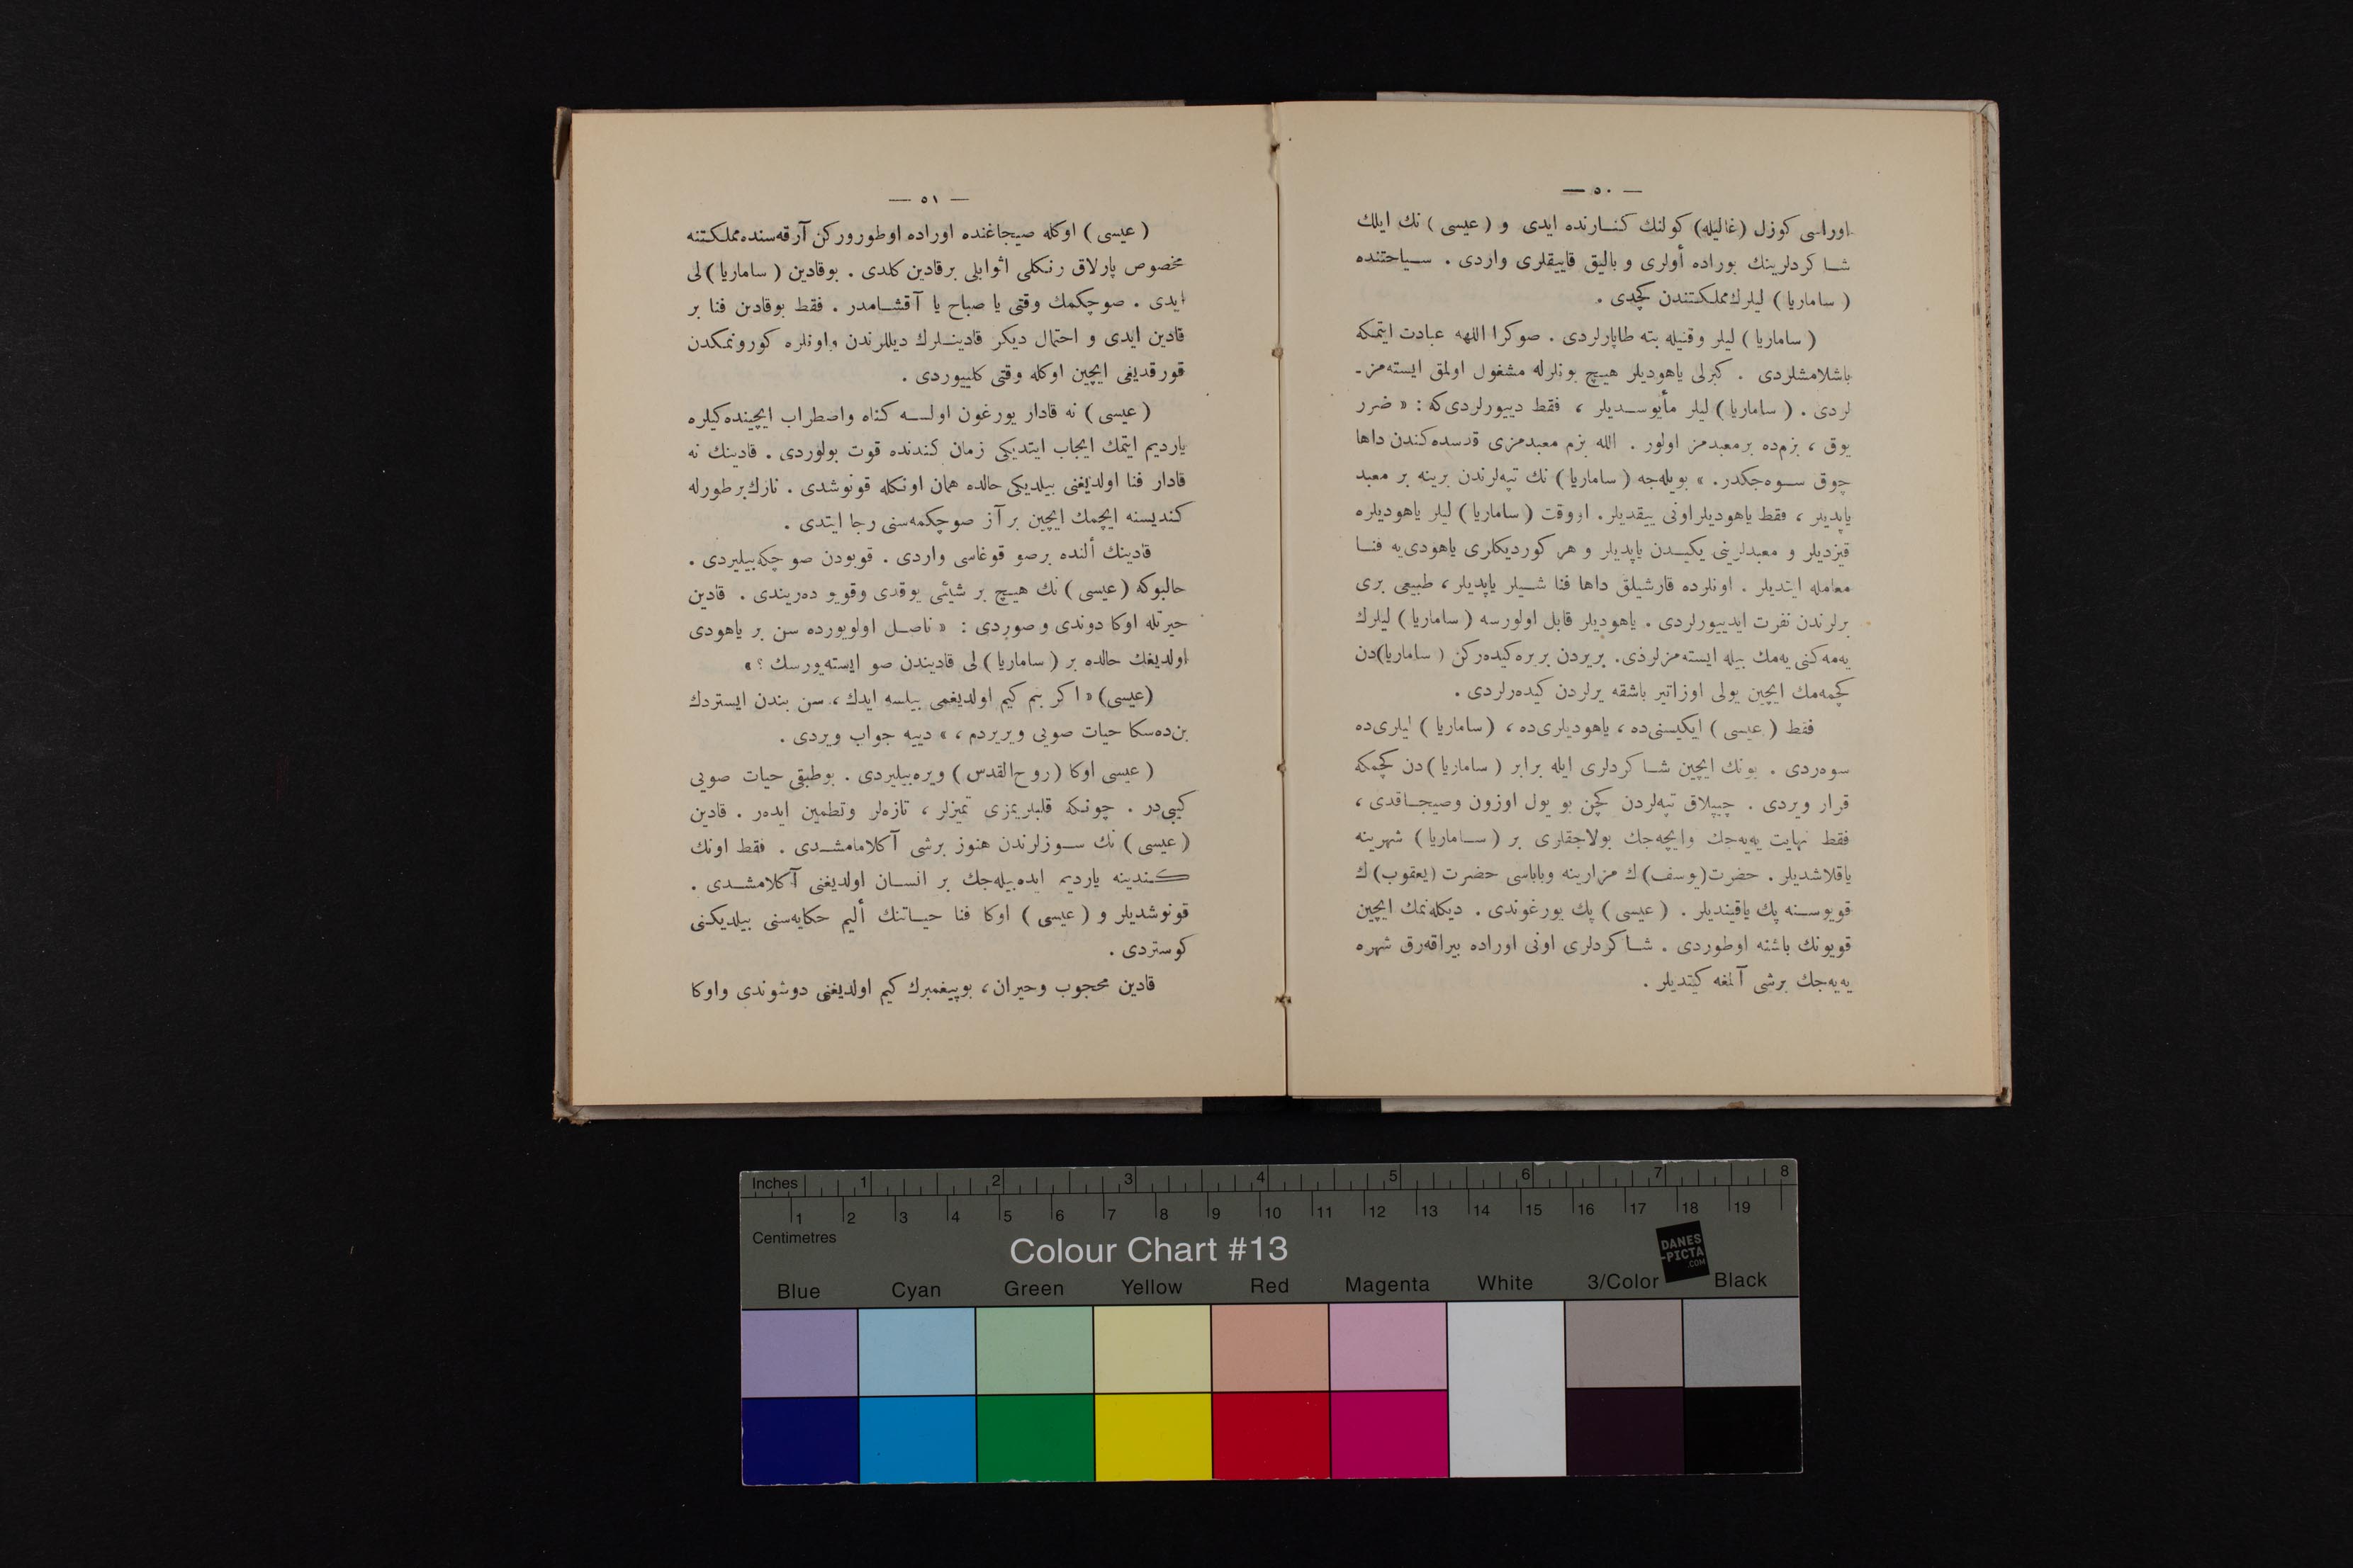 — ٥٠ —
اوراسی کوزل (غالیله) کولنك کنـارنده ایدی و (عیسی) نك ایلك
شـا کردلرینك بوراده أولری و بالیق قاییقلری واردی . سـیاحتنده
(ساماریا) لیلرك مملکتندن کچدی .
(ساماریا) لیلر وقتیله بته طاپارلردی . صوکرا اللهه عبادت ایتمکه
باشلامشلردی . کبرلی یاهودیلر هیچ بونلرله مشغول اولمق ایسته‌مز-
لردی . (ساماریا) لیلر مأیوسـدیلر ، فقط دییورلردی‌که : « ضرر
یوق ، بزم‌ده برمعبدمز اولور . الله بزم معبدمزی قدسده‌کندن داها
چوق سـوه‌جکدر. » بویله‌جه (ساماریا) نك تپه‌لرندن برینه بر معبد
یاپدیلر ، فقط یاهودیلر اونی ییقدیلر. اووقت (ساماریا) لیلر یاهودیلره
قیزدیلر و معبدلرینی یکیـدن یاپدیلر و هر کوردیکلری یاهودی‌یه فنـا
معامله ایتدیلر . اونلرده قارشیلق داها فنا شـیلر یاپدیلر ، طبیعی بری
برلرندن نفرت ایدییورلردی . یاهودیلر قابل اولورسه (ساماریا) لیلرك
یه‌مه‌کنی یه‌مك بیله ایسته‌مزلردی. بریردن بریره‌کیده‌رکن (ساماریا)دن
کچمه‌مك ایچین یولی اوزاتیر باشقه یرلردن کیده‌رلردی .
فقط (عیسی) ایکیسنی‌ده ، یاهودیلری‌ده ، (ساماریا) لیلری‌ده
سوه‌ردی . بونك ایچین شـا کردلری ایله برابر (ساماریا) دن کچمکه
قرار ویردی . چیپلاق تپه‌لردن کچن بو یول اوزون وصیجـاقدی ،
فقط نهایت یه‌یه‌جك وایچه‌جك بولاجقلری بر (سـاماریا) شهرینه
یاقلاشدیلر . حضرت(یوسف)ك مزارینه وباباسی حضرت (یعقوب)ك
قویوسـنه پك یاقیندیلر . (عیسی) پك یورغوندی . دیکله‌نمك ایچین
قویونك باشنه اوطوردی . شـا کردلری اونی اوراده بیراقه‌رق شهره
یه‌یه‌جك برشی آلمغه کیتدیلر .
— ٥١ —
(عیسی) اوکله صیجاغنده اوراده اوطورورکن آرقه‌سنده مملکتنه
مخصوص پارلاق رنکلی اثوابلی برقادین کلدی . بوقادین (ساماریا) لی
ایدی . صوچکمك وقتی یا صباح یا آقشـامدر . فقط بوقادین فنا بر
قادین ایدی و احتمال دیکر قادینـلرك دیللرندن واونلره کورونمکدن
قورقدیغی ایچین اوکله وقتی کلییوردی .
(عیسی) نه قادار یورغون اولـسه کناه واضطراب ایچینده‌کیلره
یاردیم ایتمك ایجاب ایتدیکی زمان کندنده قوت بولوردی . قادینك نه
قادار فنا اولدیغنی بیلدیکی حالده همان اونکله قونوشدی . نازك‌برطورله
کندیسنه ایچمك ایچین بر آز صوچکمه‌سنی رجا ایتدی .
قادینك ألنده برصو قوغاسی واردی . قویودن صو چکه‌بیلیردی .
حالبوکه (عیسی) نك هیـچ بر شیئی یوقدی وقویو ده‌ریندی . قادین
حیرتله اوکا دوندی و صوردی : « ناصـل اولویورده سن بر یاهودی
اولدیغك حالده بر (ساماریا) لی قادیندن صو ایسته‌یورسك ؟ »
(عیسی) « اکر بنم کیم اولدیغمی بیلسه ایدك ، سن بندن ایستردك
بن‌ده‌سکا حیات صویی ویریردم ، » دییه جواب ویردی .
(عیسی اوکا (روح‌القدس) ویره‌بیلیردی . بوطبقی حیات صویی
کیبی‌در . چونکه قلبلریمزی تمیزلر ، تازه‌لر وتطمین ایده‌ر . قادین
(عیسی) نك سـوزلرندن هنوز برشی آکلامامشـدی . فقط اونك
کـندینه یاردیم ایده‌بیله‌جك بر انسـان اولدیغنی آکلامشـدی .
قونوشدیلر و (عیسی) اوکا فنا حیـاتنك ألیم حکایه‌سنی بیلدیکنی
کوستردی .
قادین محجوب وحیران ، بوپیغمبرك کیم اولدیغنی دوشوندی واوکا
Inches 1 2 3 4 5 6 7 8
1 2 3 4 5 6 7 8 9 10 11 12 13 14 15 16 17 18 19
Centimetres
Colour Chart #13
DANES
-PICTA
.COM
Blue Cyan Green Yellow Red Magenta White 3/Color Black